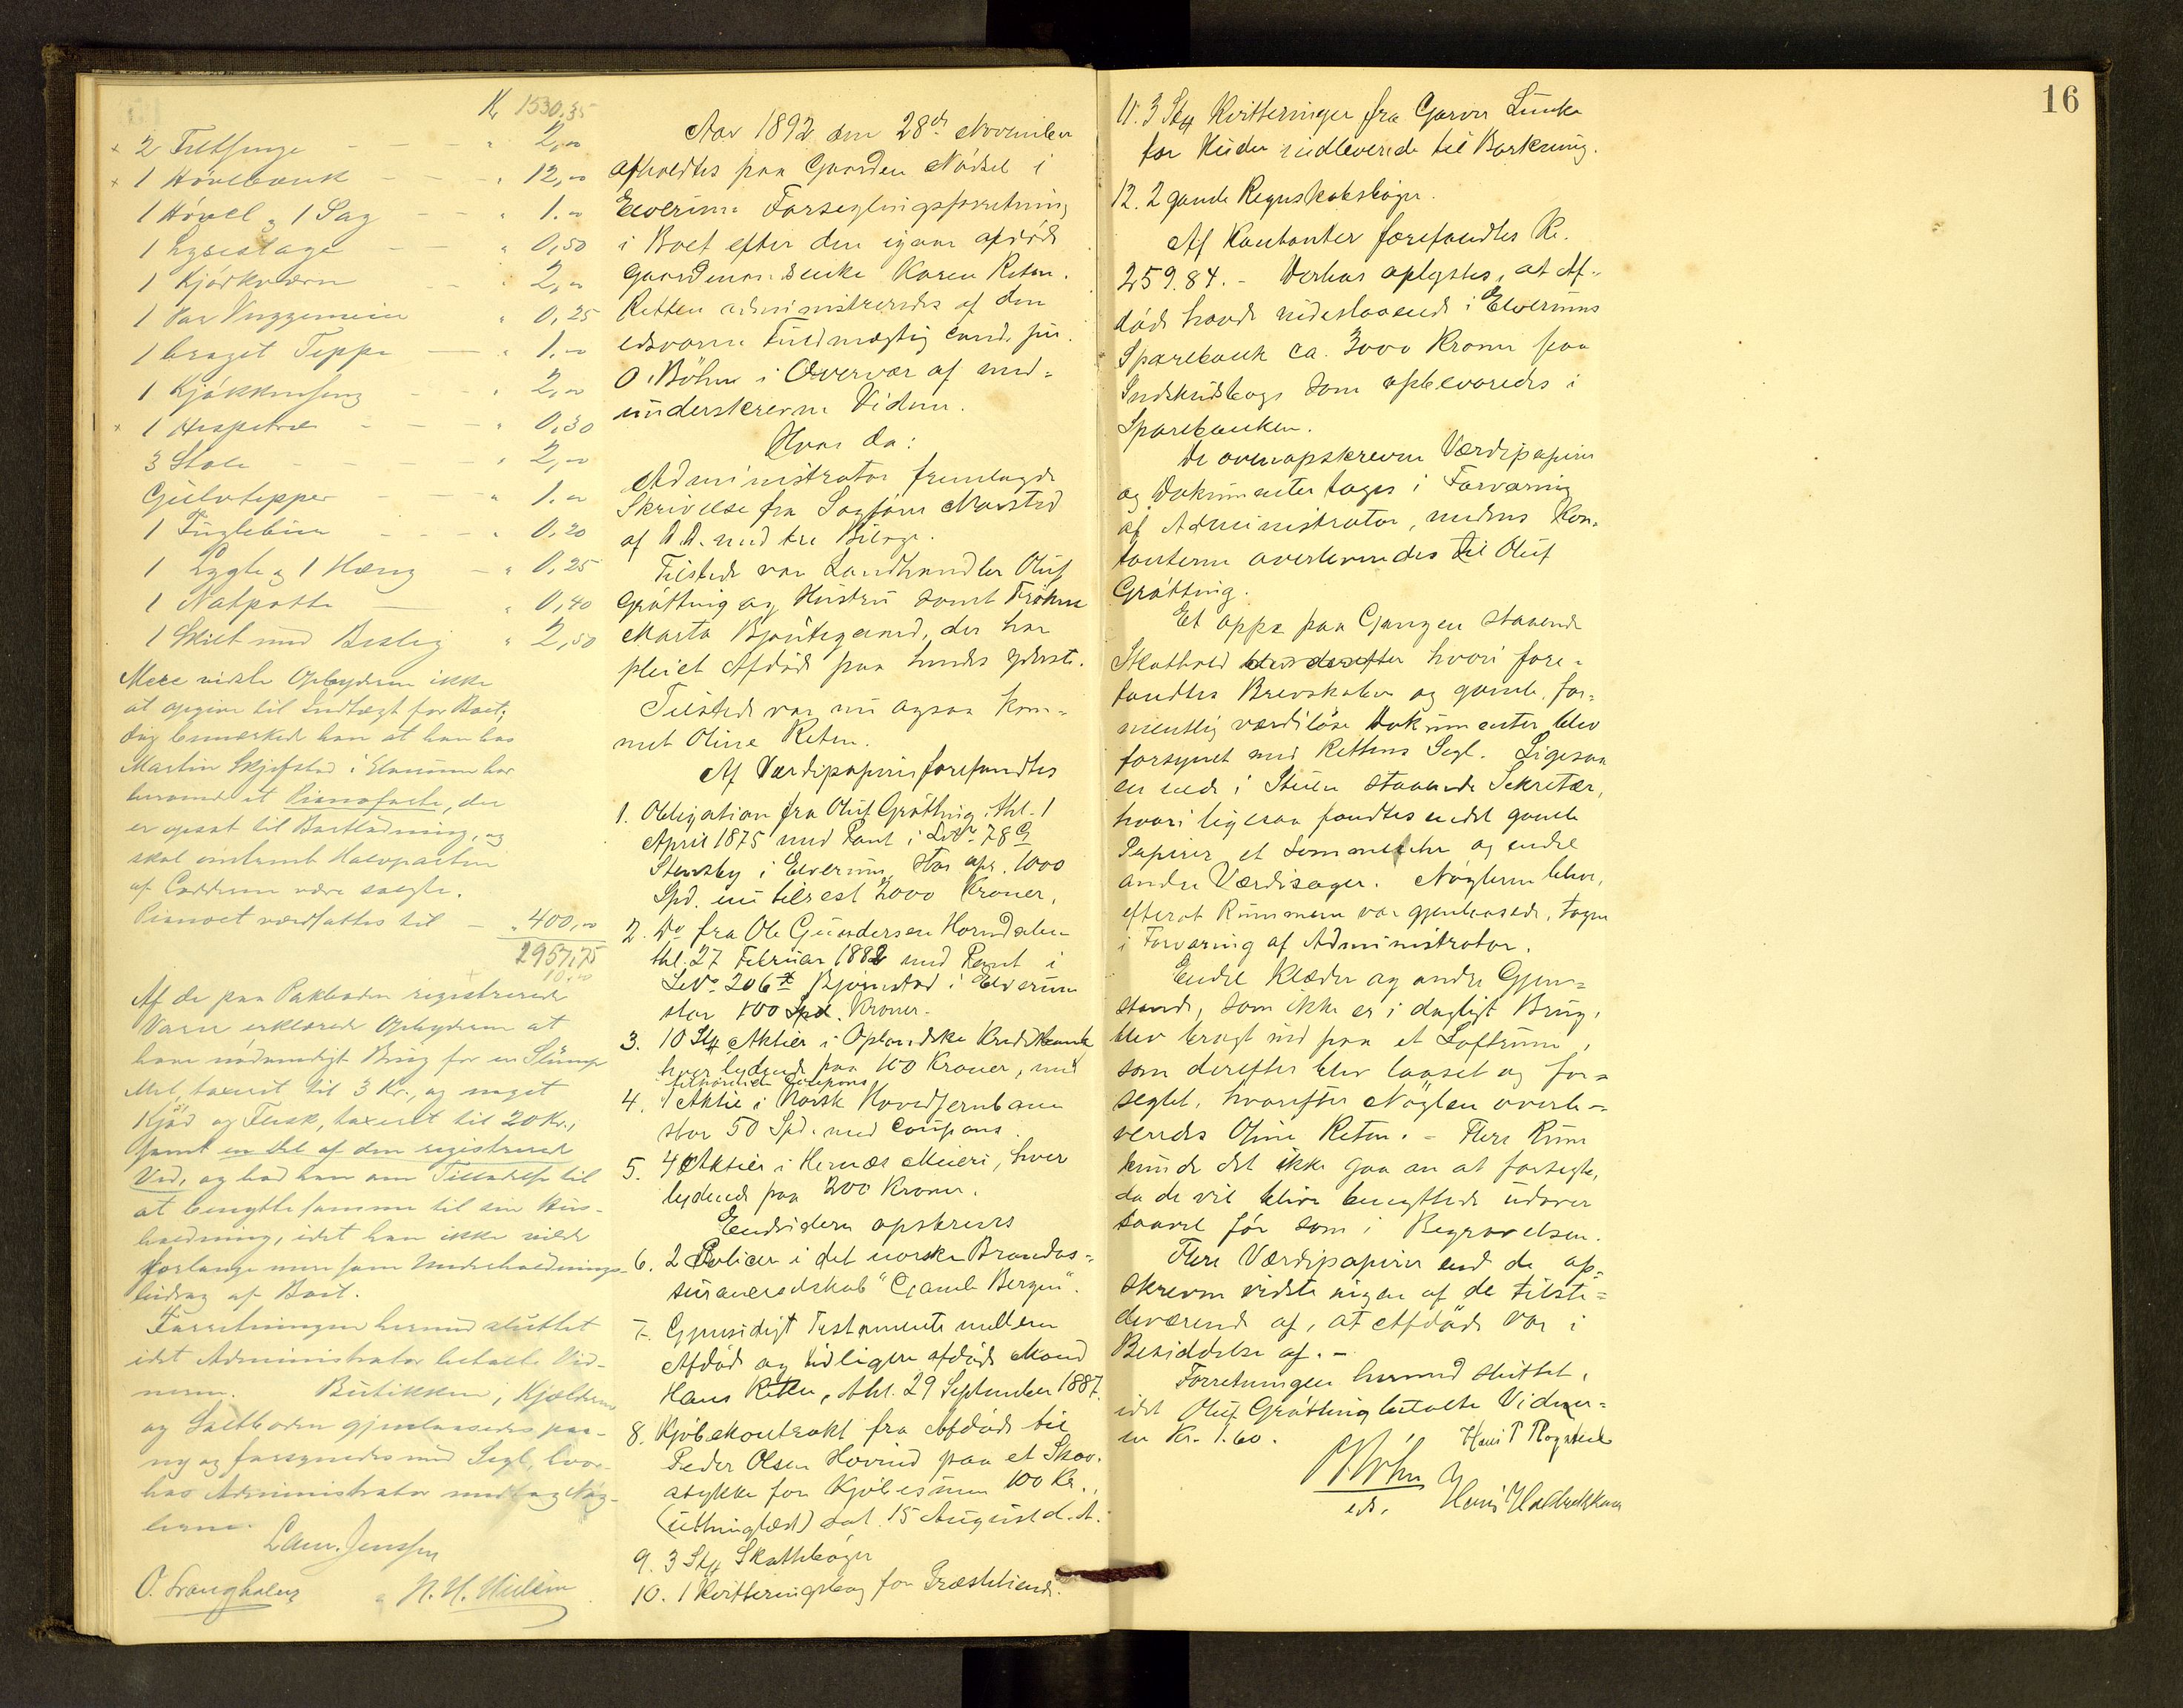 Kr 1530,35
× 2 Feltsenge - - " 2,00
× 1 Hövlbænk - - " 12,00
1 Hövel og 1 Sag - - " 1.00
1 Lysestage - - " 0,50
1 Kjödkværn - - " 2,00
1 Par Vuggemeier " 0,25
1 broget Teppe - " 1,00
1 Kjøkkenseng - " 2,00
× 1 Hespetræ - - " 0,30
3 Stole - - " 2,00
Gulvtepper - - " 1.00
1 Fuglebur - - " 0,20
1 Lygte og 1 Hæng - " 0,25
1 Natpotte - " 0,40
1 Skilt med Beslag " 2,50
Mere vidste Opbyderen ikke
at opgive til Indtægt for Boet;
dog bemærkede han at han hos
Martin Skjefstad i Elverum har
beroende et Pianoforte, der
er opsat til Bortlodning, og
skal omtrent Halvparten
af Lodderne være solgte.
Pianoet værdsattes til - " 400,00
2957,75
+ 10.00
Af de paa Pakboden registrerede
Varer erklærede Opbyderen at
have nødvendigt Brug for en Slump
Mel, taxeret til 3 Kr., og noget
Kjød og Flesk, taxeret til 20 Kr.,
samt en Del af den registrerede
Ved, og bad han om Tilladelse til
at benytte samme til sin Hus-
holdning, idet han ikke vilde
forlange mere som Underholdnings-
bidrag af Boet.
Forretningen hermed sluttet
idet Administrator betalte Vid-
nerne. Butikken, Kjælderen
og Saltboden gjenlaasedes paa-
ny og forsynedes med Segl, hvor-
hos Administrator modtog Nøg-
lerne.
Laur. Jenssen
O. Svenghaug N. H. Nielsen
Aar 1892 den 28de November
afholdtes paa Gaarden Nödset i
Elverum Forseglingsforretning
i Boet efter den igaar afdöde
Gaardmandsenke Karen Reten.
Retten administreredes af den
edsvorne Fuldmægtig cand. jur.
O. Böhn i Overvær af med-
underskrevne Vidner.
Hvor da:
Administrator fremlagde
Skrivelse fra Sagförer Narsted
af D. D. med tre Bilage.
Tilstede var Landhandler Oluf
Gröttning og Hustru samt Fröken
Marta Bjöntegaard, der har
pleiet Afdöde paa hendes yderste.
Tilstede var nu ogsaa kom-
met Oline Reten.
Af Værdipapirer forefandtes
1. Obligation fra Oluf Gröttning thl. 1
April 1875 med Pant i LNo 78 G
Stensby i Elverum, stor opr. 1000
Spd. nu tilrest 2000 Kroner.
2. Do fra Ole Gundersen Horndalen
thl. 27 Februar 1882 med Pant i
LNo 206 x Bjørnstad i Elverum
stor 100 Spd. Kroner.
3. 10 Stk Aktier i Oplandske Kreditbank
hver lydende paa 100 Kroner, med
tilhörende Coupons
4. 1 Aktie i Norsk Hovedjernbane
stor 50 Spd. med Coupons.
5. 4 Aktier i Hernæs Meieri, hver
lydende paa 200 Kroner.
Endvidere opskrevs
6. 2 Policer i det norske Brandas-
suranceselskab "Gamle Bergen".
7. Gjensidigt Testamente mellem
Afdöde og tidligere afdöde Mand
Hans Reten, thl. 29 September 1887.
8. Kjöbekontrakt fra Afdöde til
Peder Olsen Hovind paa et Skov-
stykke for Kjöbesum 100 Kr.,
(uthinglæst) dat. 15 August d. A.
9. 3 Stk Skattebøger
10. 1 Kvitteringsbog for Præstetiende.
16
11. 3 Stk Kvitteringer fra Garver Lunke
for Huder indleverede til Barkning.
12. 2 gamle Regnskabsböger.
Af Kontanter forefandtes Kr.
259.84. - Derhos oplystes, at Af-
döde havde indestaaende i Elverums
Sparebank ca. 3000 Kroner paa
Indskudsbog som opbevaredes i
Sparebanken.
De ovenopskrevne Værdipapirer
og Dokumenter toges i Forvaring
af Administrator, medens Kon-
tanterne overleveredes til Oluf
Gröttning.
Et oppe paa Gangen staaende
Skathold blev derefter hvori fore-
fandtes Brevskaber og gamle, for-
mentlig værdilöse Dokumenter blev
forsynet med Rettens Segl. Ligesaa
en nede i Stuen staaende Sekretær,
hvori ligesaa fandtes endel gamle
Papirer et Lommeuhr og endel
andre Værdisager. Nöglerne blev,
efterat Rummene var gjenlaasede, tagne
i Forvaring af Administrator.
Endel Klæder og andre Gjen-
stande, som ikke er i dagligt Brug,
blev bragt ind paa et Loftrum,
som derefter blev laaset og for-
seglet, hvorefter Nöglen overle-
veredes Oline Reten. - Flere Rum
kunde det ikke gaa an at forsegle,
da de vil blive benyttede udover
saavel för som i Begravelsen.
Flere Værdipapirer end de op-
skrevne vidste ingen af de tilste-
deværende af, at Afdöde var i
Besiddelse af. -
Forretningen hermed sluttet,
idet Oluf Gröttning betalte Vidner-
ne Kr. 1.60.
O. Böhn
eds.
Hans
Hans